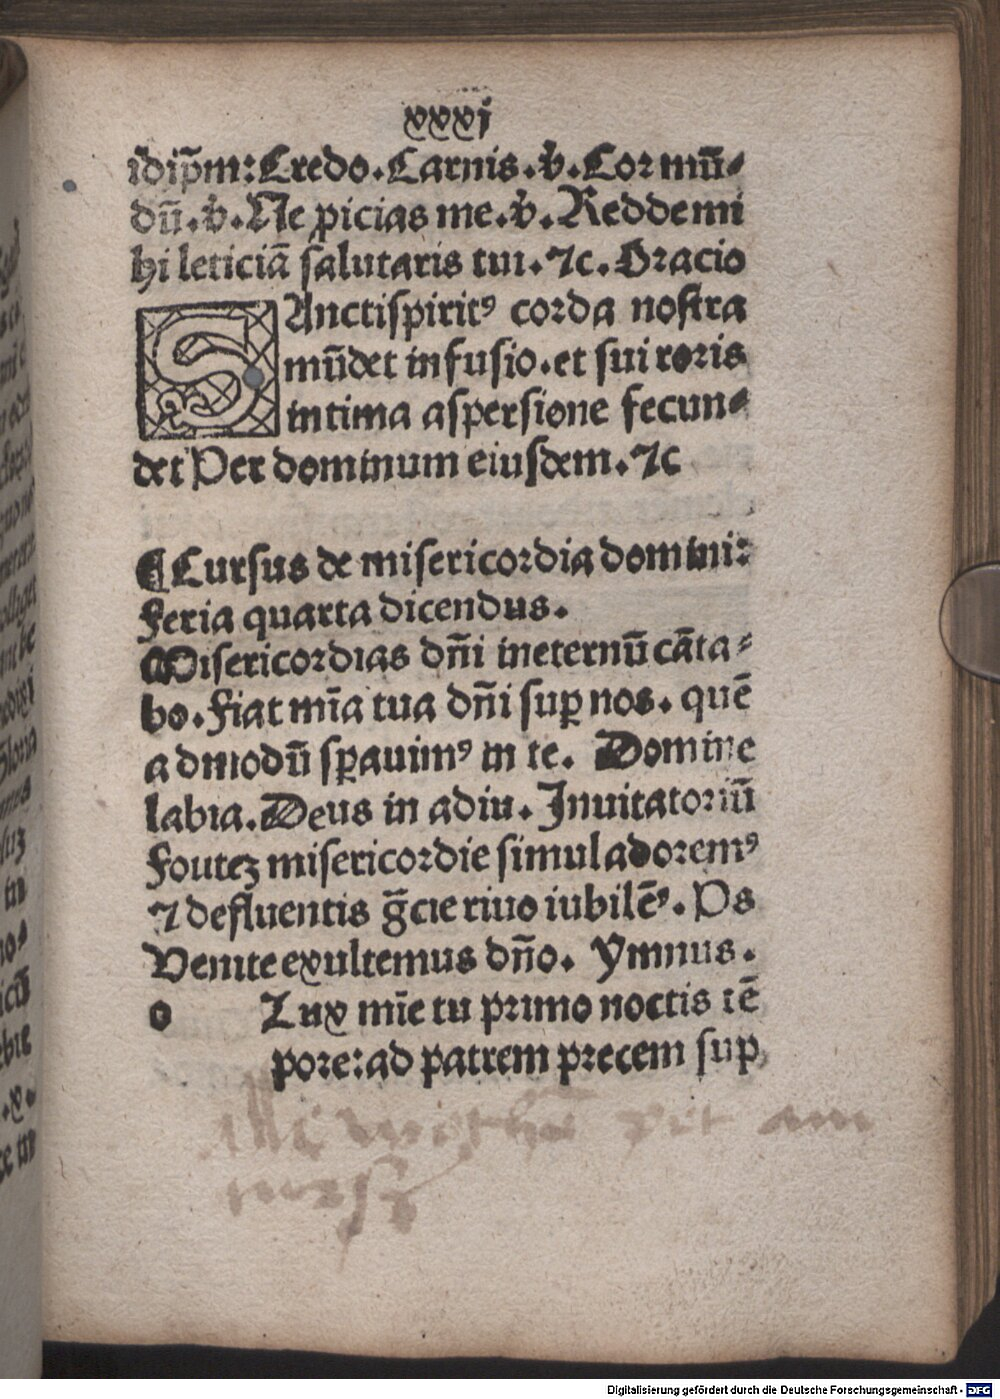 xxxj
idip̄m: Credo. Carnis. v̇. Cor mū-
dū. v̇. Ne ꝓicias me. v̇. Redde mi
hi leticiā salutaris tui. ⁊c. Oracio
SAnctispiritꝰ corda nostra
mūdet infusio. et sui roris
intima aspersione fecun-
det Per dominum eiusdem. ⁊c
¶ Cursus de misericordia domini:
feria quarta dicendus.
Misericordias dn̄i ineternū cāta-
bo. Fiat mīa tua dn̄i suꝑ nos. quē
admodū sꝑauimꝰ in te. Domine
labia. Deus in adiu. Inuitatoriū
Foutez misericordie simul adoremꝰ
⁊ defluentis gr̄cie riuo iubilēꝰ. Ps
Venite exultemus dn̄o. Ymnus.
o Lux mīe tu primo noctis tē
pore: ad patrem precem sup
Digitalisierung gefördert durch die Deutsche Forschungsgemeinschaft - DFG